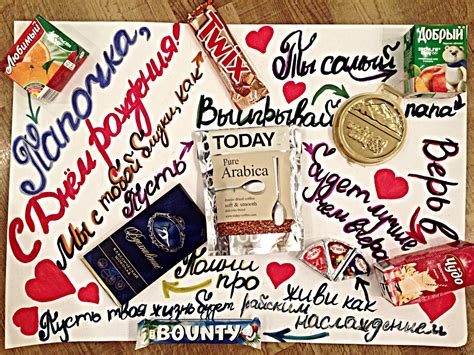 Любимый
Папочка,
С Днём рождения!
Мы с тобой близки, как
TWIX
Ты самый
Добрый
папа
Выигрывай
Верь в
Чудо
Пусть
TODAY
Pure
Arabica
soft & smooth
Будет лучше
чем вчера
Вдохновение
Помни
про
живи как
наслаждением
Пусть твоя жизнь будет райским
BOUNTY